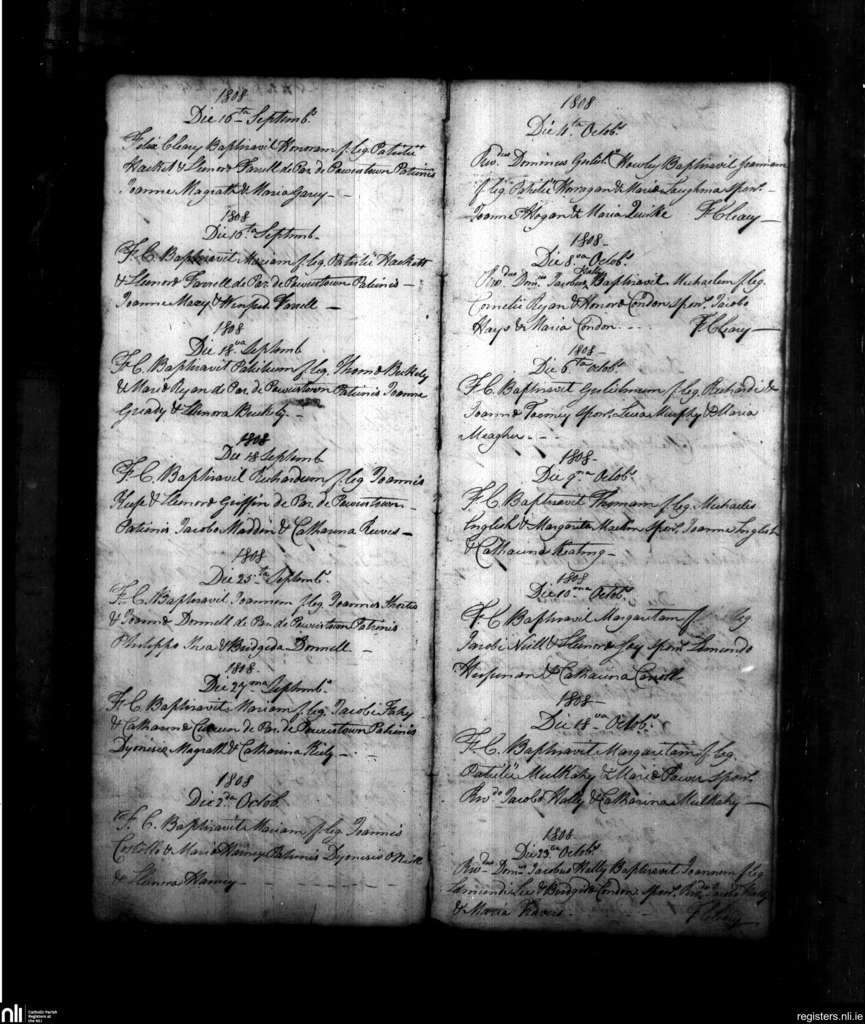 1808
Die 16ta Septembs
Felix Cleary Baptizavit Honoram f. leg. Patritii
Hacket & Elenoræ Farrell de Par. de Powerstown Patrinis
Joanne Magrath & Maria Garey
1808
Die 16ta Septemb.
F. C. Baptizavit Mariam f. leg. Patritii Hackett
& Elenoræ Farrell de Par. de Powerstown Patrinis
Joanne Mary & Winefred Farrell
1808
Die 18va Septemb
F. C. Baptizavit Patritium f. leg. Thomæ
& Mariæ Ryan de Par. de Powerstown Patrinis Joanne
Gready & Elenora
1808
Die 18 Septemb
F. C. Baptizavit Richardum f. leg. Joannis
Keefe & Elenoræ Griffin de Par. de Powerstown
Patrinis Jacobo Madden & Catharina Reeves
1808
Die 25ta Septembs
F. C. Baptizavit Joannem f. leg. Joannis
& Joannæ Donnell de Par. de Powerstown Patrinis
Philippo Shea & Bridgida Donnell
1808
Die 27ma Septembs
F. C. Baptizavit Mariam f. leg. Jacobi Fahy
& Catharinæ Curreen de Par. de Powerstown Patrinis
Dyonisio Magrath & Catharina Kiely
1808
Die 2da Octob.
F. C. Baptizavit Mariam f. leg. Joannis
Costello & Mariæ Haney Patrinis Dyonisio
& Elenora Haney
1808
Die 4ta Octobs
Rvdus Dominus Guliels Howley Baptizavit Joannam
f. leg. Patritii Horagan & Mariæ Laughnan Spons.
Joanne Hogan & Maria Quirke F. Cleary
1808
Die 8va Octobs
Rvdus Doms Jacobus Hally Baptizavit Michaelem f. leg.
Cornelii Ryan & Honoræ Condon Spons. Jacobo
Hays & Maria Condon F. Cleary
1808
Die 6ta Octobs
F. C. Baptizavit Gulielmum f. leg. Richardi
Joannæ Toomey Spons. Murphy & Maria
Meagher
1808
Die 9na Octobs
F. C. Baptizavit Thomam f. leg. Michaelis
English & Margaritæ Spons. Joanne English
& Catharina Keating
1808
Die 10ma Octobs
F. C. Baptizavit Margaritam f. leg.
Jacobi Neill & Elenoræ Spons. Edmundo
& Catharina Carroll
1808
Die 18va Octobs
F. C. Baptizavit Margaritam f. leg.
Patritii Mulkahy & Mariæ Power Spons.
Rvdo Jacobo Hally & Catharina Mulkahy
1808
Die 23tia Octobs
Rvdus Doms Jacobus Hally Baptizavit Joannem f. leg
Edmundi Lee & Bridgidæ Condon Spons. Rvdo Jacobo Hally
& Maria F. Cleary
nli
Catholic Parish
Registers at
the NLI
registers.nli.ie